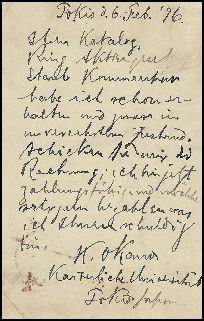 Tokio d. 6. Feb. '96.
Ihren Katalog
King
Staub Kommentar
habe ich schon er-
halten und zwar im
unversehrten Zustand.
Schicken Sie mir die
Rechnung; ich bin jetzt
zahlungsfähig und möchte
bezahlen was
ich Ihnen schuldig
bin.
K. Okano
Kaiserliche Universität
Tokio Japan